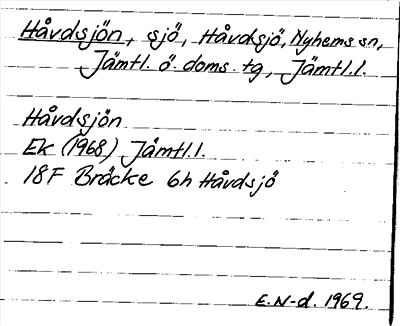 Håvdsjön, sjö, Håvdsjö, Nyhems sn,
Jämtl. ö. doms. tg, Jämtl.l.
Håvdsjön
Ek (1968) Jämtl.l.
18F Bräcke 6h Håvdsjö
E.N-d. 1969.